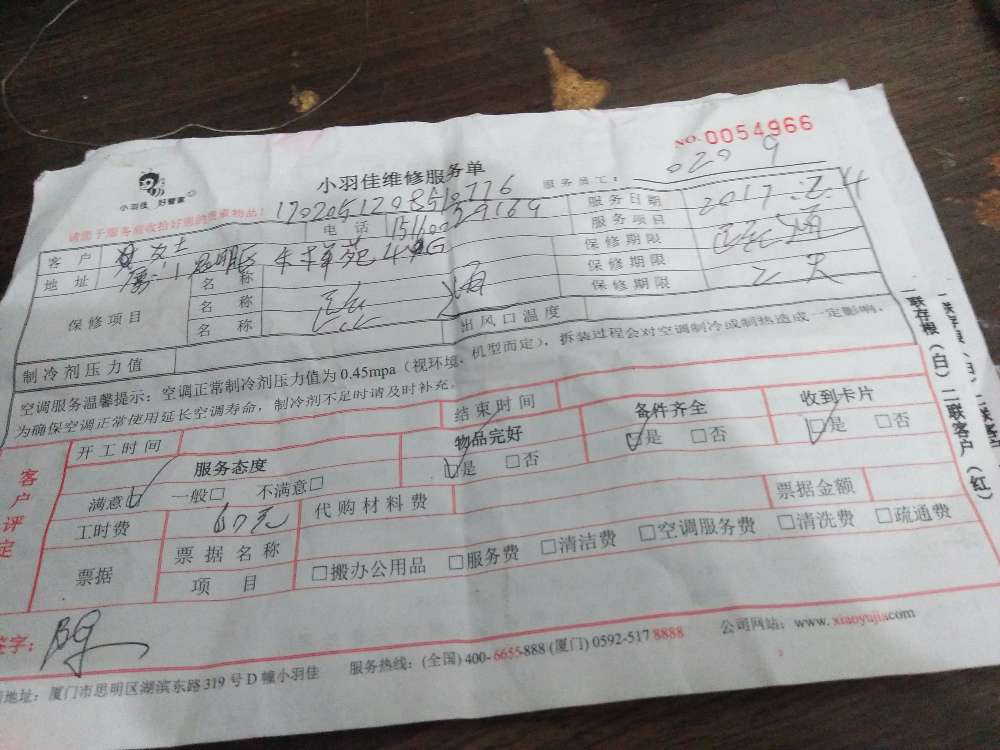 NO. 0054966
小羽佳 好管家
小羽佳维修服务单
服务员工: 0209
请您于服务前收拾好您的贵重物品!
客户 女士 电话 服务日期 2017
地址 服务项目
保修项目 名称 保修期限
名称 保修期限
名称 保修期限 天
制冷剂压力值 出风口温度
空调服务温馨提示:空调正常制冷剂压力值为0.45mpa(视环境、机型而定),拆装过程会对空调制冷或制热造成一定影响,
为确保空调正常使用延长空调寿命,制冷剂不足时请及时补充。
客户评定
开工时间 结束时间
服务态度 物品完好 备件齐全 收到卡片
满意□ 一般□ 不满意□ □是 □否 □是 □否 □是 □否
工时费 60元 代购材料费 票据金额
票据 票据名称
项目 □搬办公用品 □服务费 □清洁费 □空调服务费 □清洗费 □疏通费
签字:
地址:厦门市思明区湖滨东路319号D幢小羽佳 服务热线:(全国)400-6655-888(厦门)0592-517 8888 公司网站:www.xiaoyujia.com
一联存根(白)二联客户(红)